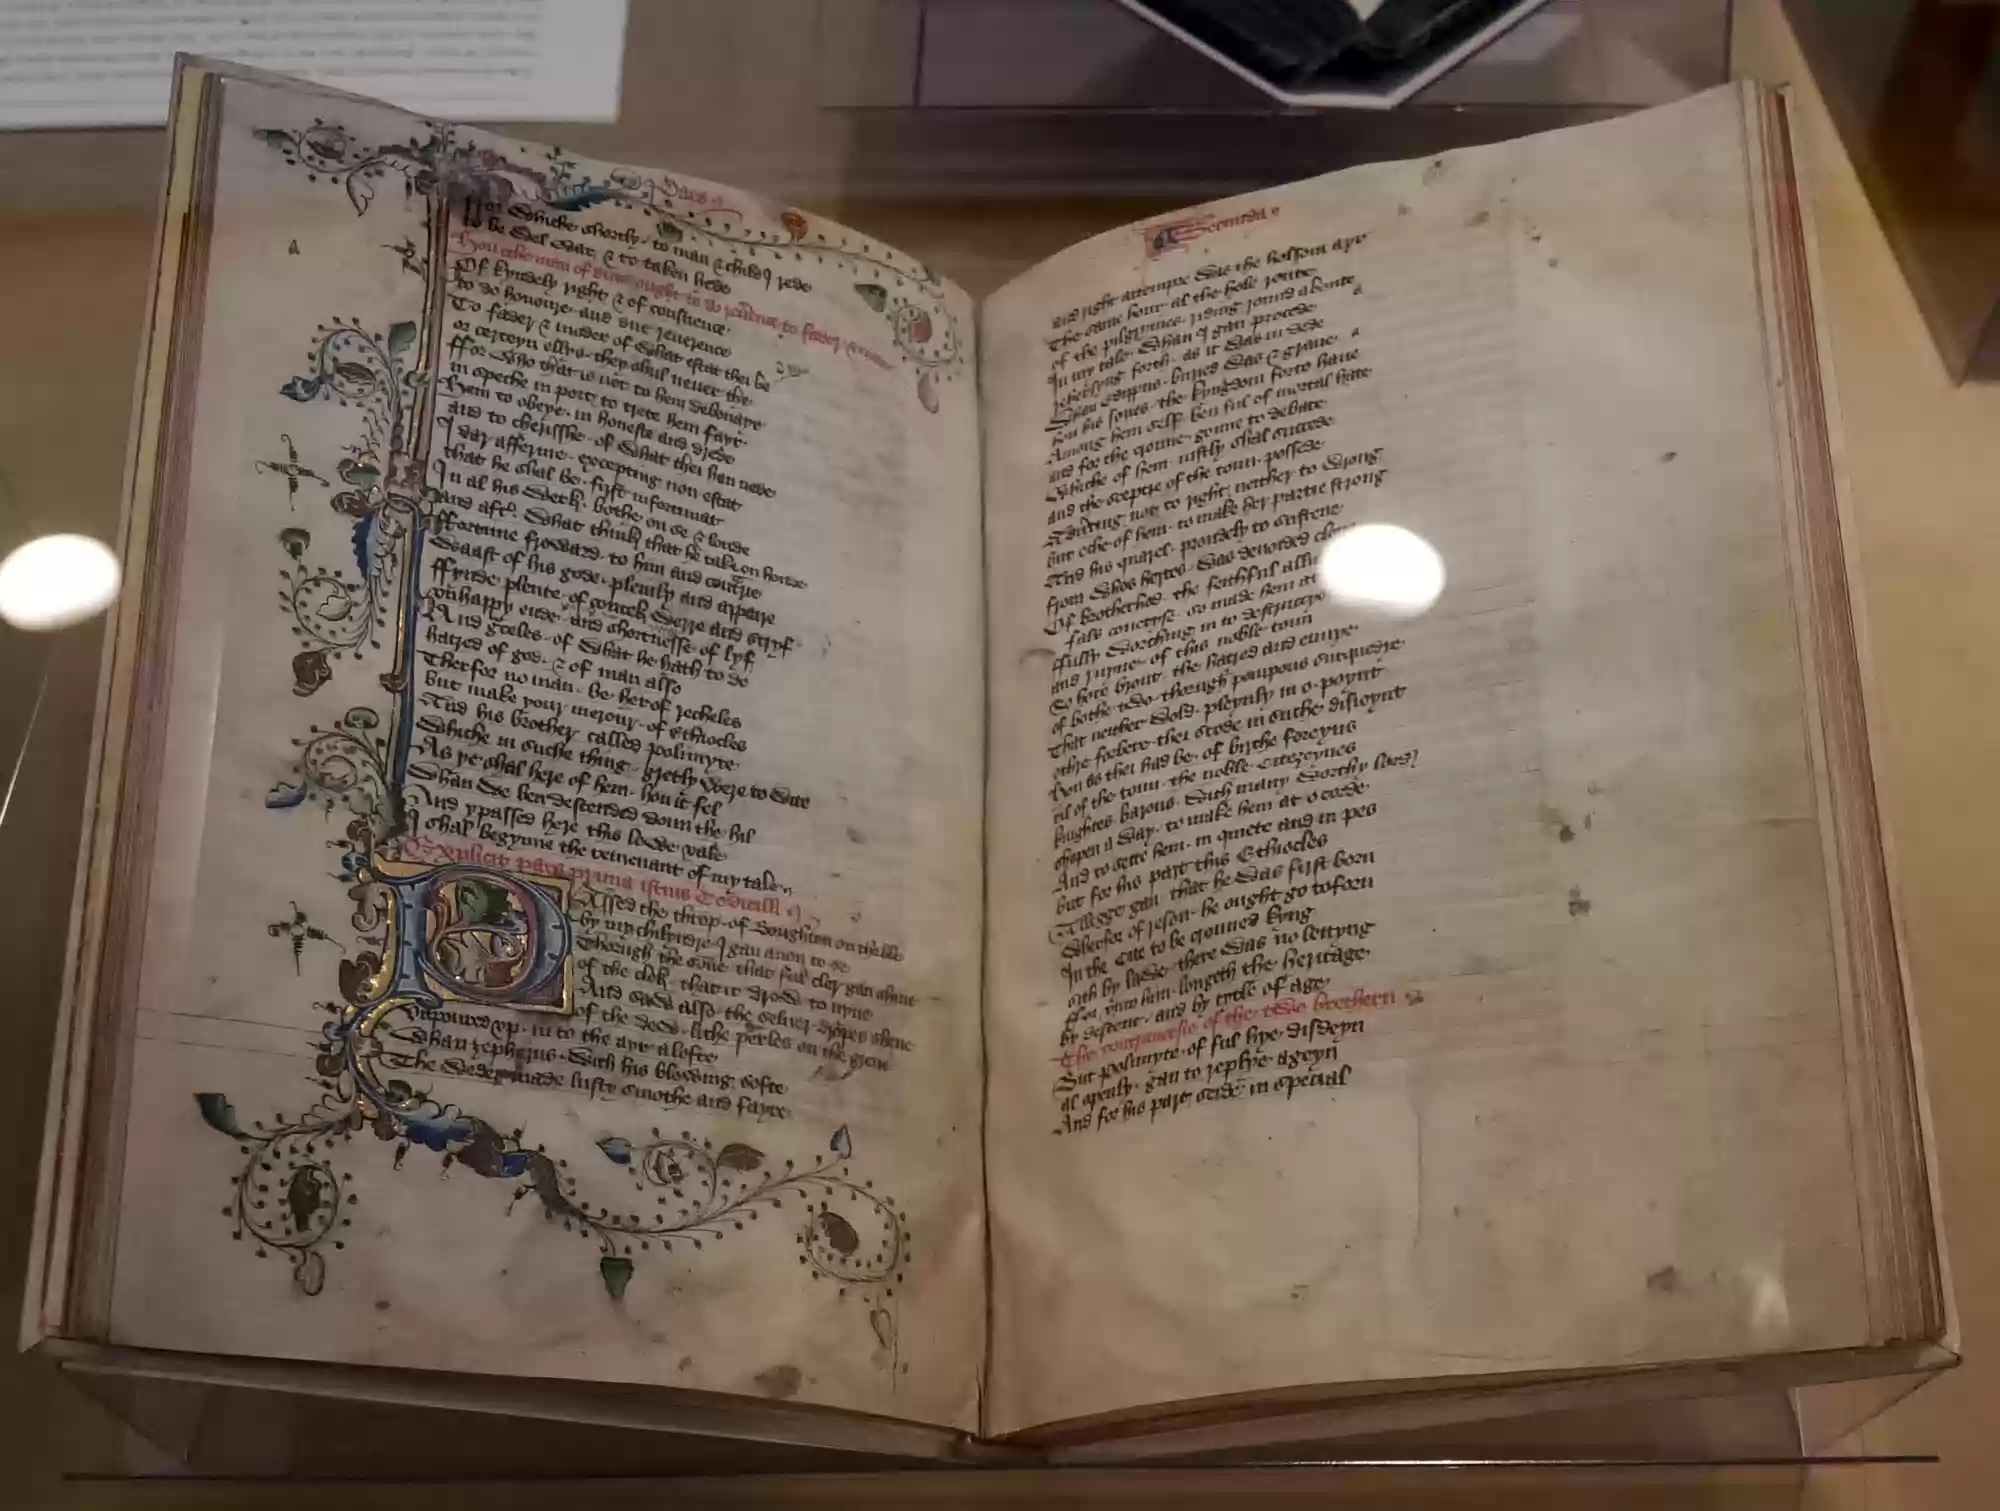 Pars
ffor Whiche shortly · to man & child I rede
to be Wel War · & to taken hede
How the men of ought to do reuerence to fader &
Of kyndely right & of conscience
to do honoure · and due reuerence
To fader & moder of What estat thei be
or certeyn ellys · they shul neuer the
ffor Who that is not to hem debonayre
in speche in port to trete hem fayre
Hem to obeye · in honeste and drede
and to cherisshe · of What thei han nede
I dar afferme · excepting non estat
that he shal be · first infortunat
In al his Werk · bothe on se & londe
and aft · What think that he take on honde
ffortune froward · to him and contrarie
Waast of his gode · plenily and appere
ffynde plente · of contek Werre and stryf
vnhappy ende · and shortnesse of lyf
And gteles · of What he hath to do
hatred of god · & of man also
Therfor no man · be her of recheles
but make your merour · of Ethiocles
And his brother called polimyte
Whiche in suche thing · gretly Were to Wite
As ye shal here of hem · hou it fel
Whan We ben descended doun the hil
And ypassed here this lowe vale
I shal begynne the remenant of my tale
Explicit pars prima istius Codicilli
Passed the throp · of Boughton on the ble
by my chilyndre · I gan anon to se
Thorugh the sone · that ful cler gan shine
of the clok · that it drowe to nyne
And sawe also · the seluer dropes shene
of the dewe · lithe perles on the grene
vapoured vp · in to the ayr alofte
Whan zepherus · With his blowing softe
The Weder made lusty smothe and fayre
Secunda
and right attempre Was the holsom ayr
The same hour al the hole route
of the pilgrymes · riding round aboute
In my tale · Whan I gan procede
reherlyng forth · as it Was in dede
Whan Edippus · buried Was & graue
hou his sones · the kyngdom forto haue
Among hem self · ben ful of mortal hate
and for the croune · gonne to debate
Whiche of hem · iustly shal succede
and the sceptre of the toun · possede
not to right · neither to Wrong
but eche of hem · to make her partie strong
And his quarel · proudely to susteue
from Whos hertes · Was deuoided
Of brotherhed · the feithful
fals coueityse · so made hem
ffully Worching in to destruccyo
and ruyne · of this noble toun
So hote brent · the hatred and enuye
of bothe two · thorugh pompous surquedye
That neither Wold · pleynly in o poynt
othre forbere · thei stode in suche disioynt
hou as thei had be · of birthe foreyns
til of the toun · the noble Citezeynes
knightes barons · With many Worthy lord
shapen a day · to make hem at o corde
And to sette hem · in quiete and in pes
but for his part this Ethiocles
Allegge gan · that he Was first born
Wherfor of reson · he ought go toforn
In the Cite to be crouned kyng
sith by lawe · there Was no lettyng
ffor vnto him · longeth the heritage
by descent · and by tytle of age
The controuersie of the two bretheren
But polimyte · of ful hye disdeyn
al openly · gan to replye ageyn
And for his part seide in special